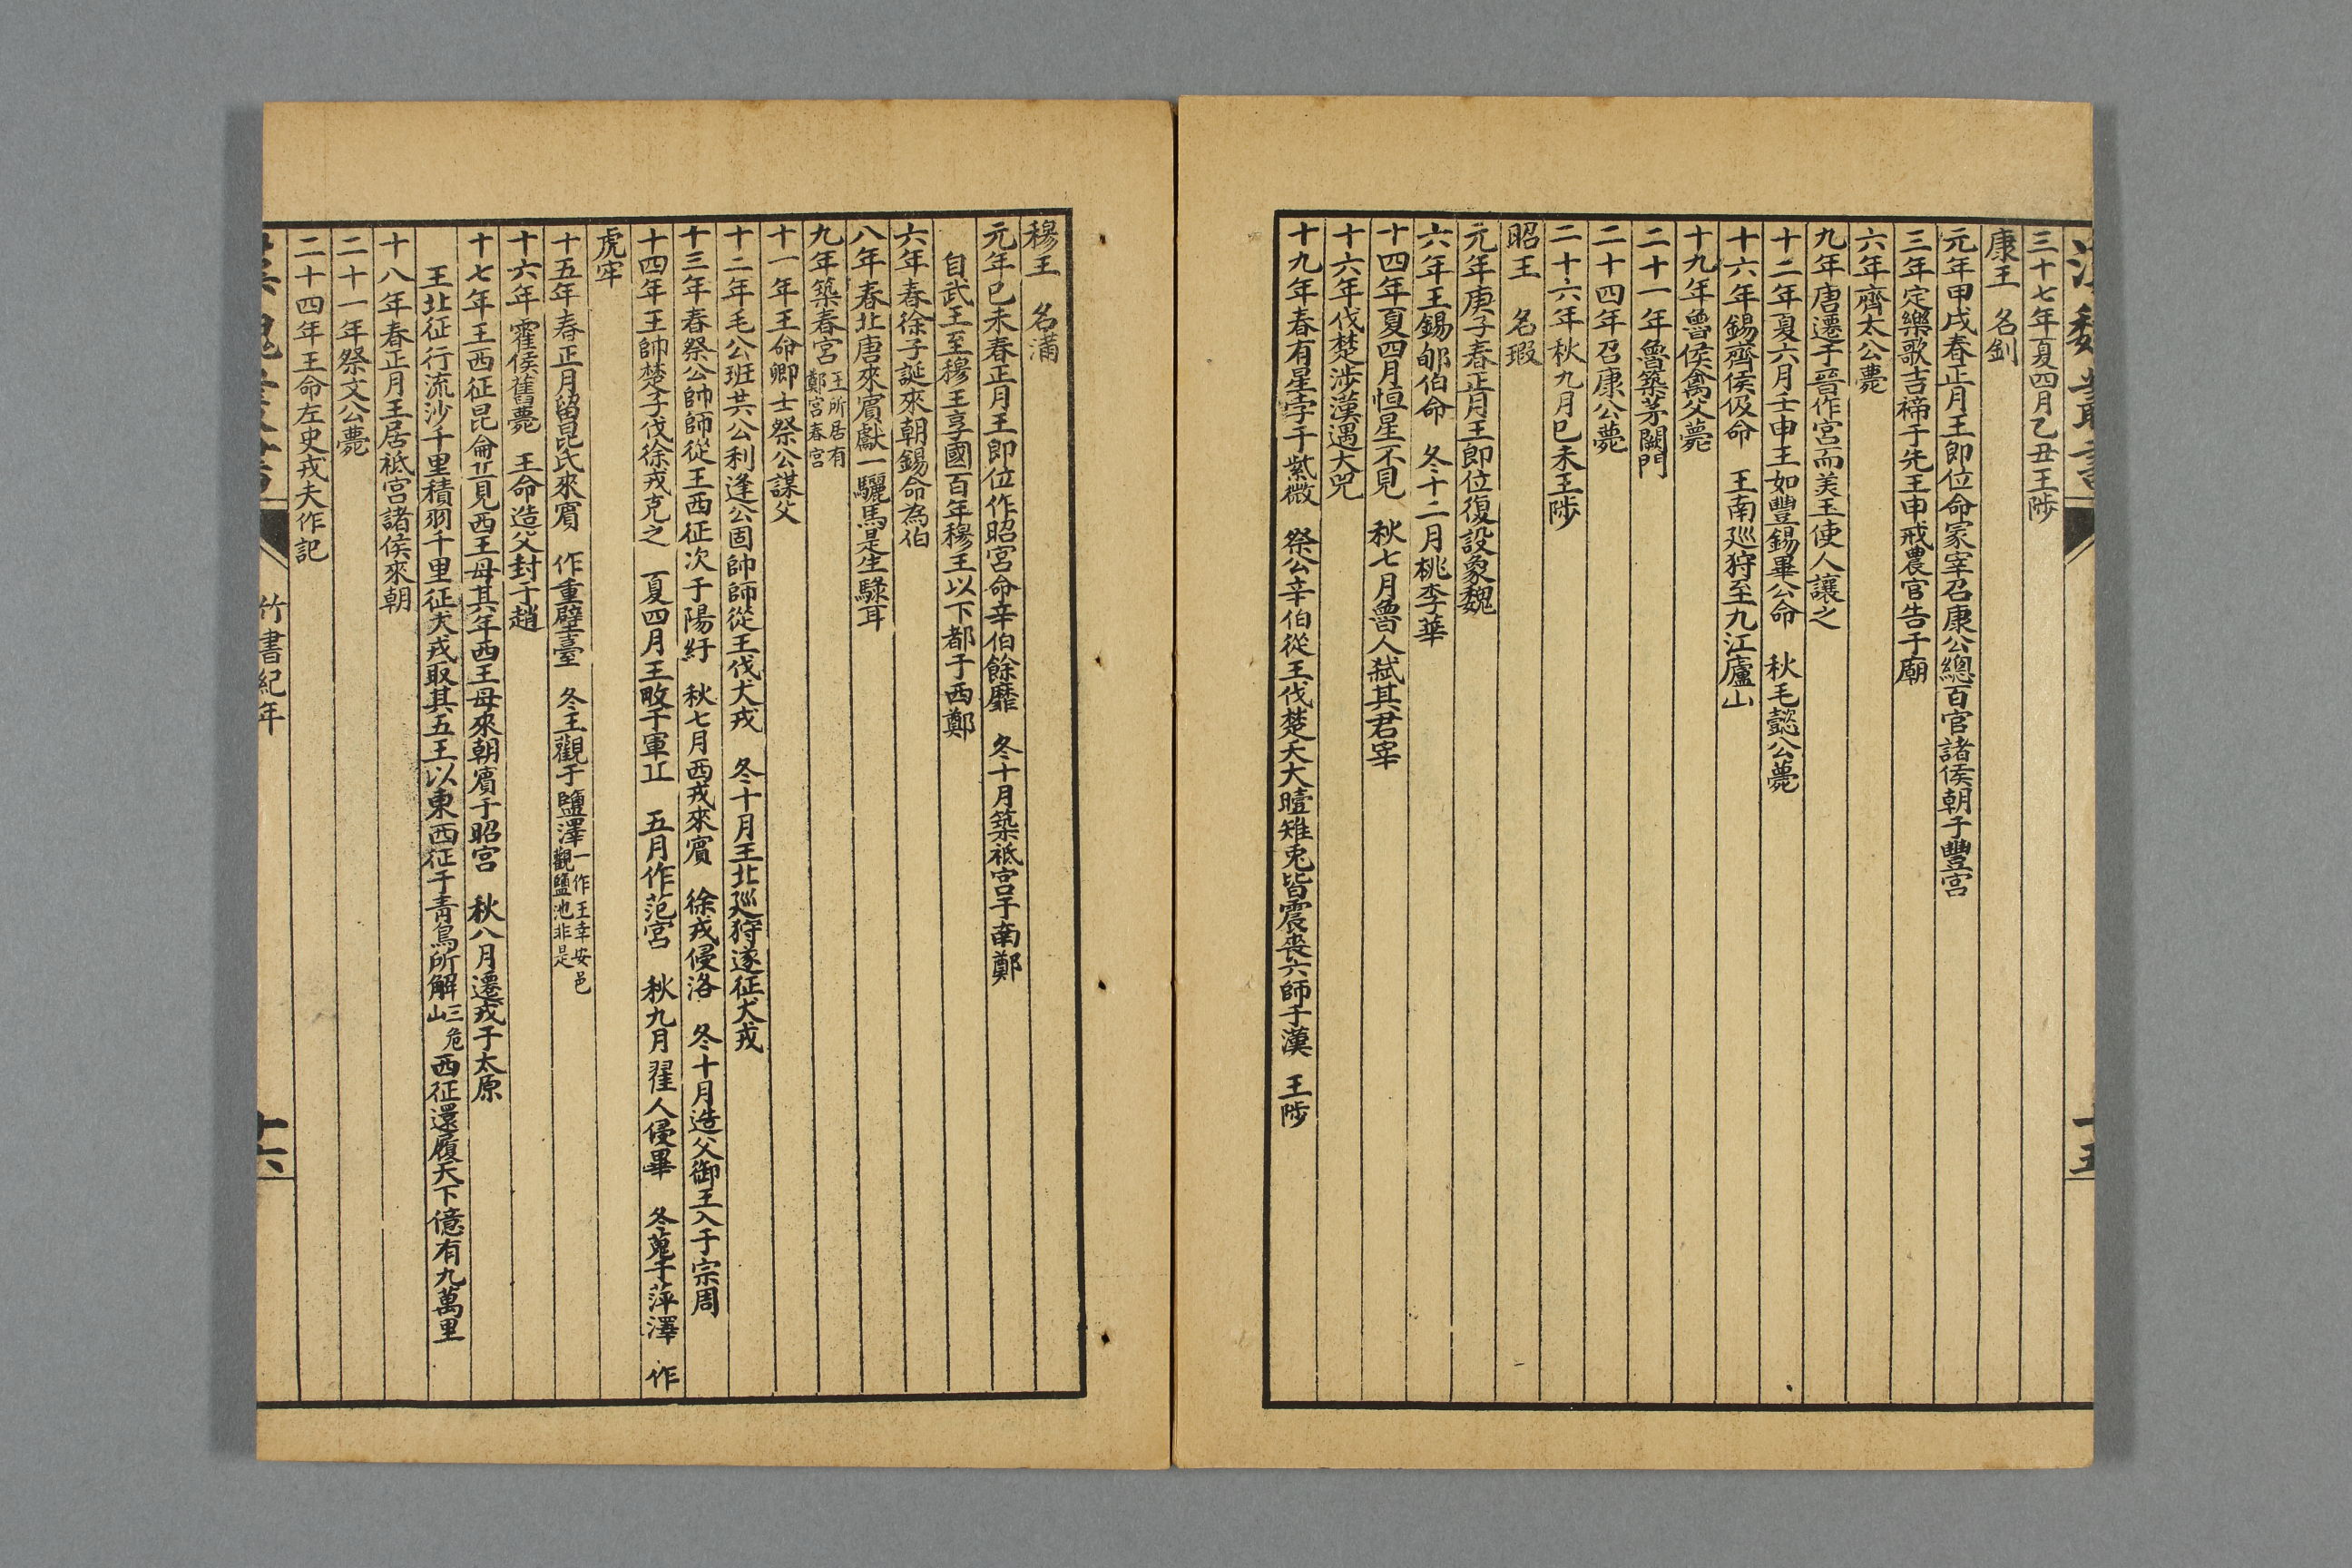 漢魏叢書
十五
三十七年夏四月乙丑王陟
康王　名釗
元年甲戌春正月王即位命冢宰召康公總百官諸侯朝于豐宮
三年定樂歌吉禘于先王申戒農官告于廟
六年齊太公薨
九年唐遷于晉作宮而美王使人讓之
十二年夏六月壬申王如豐錫畢公命　秋毛懿公薨
十六年錫齊侯伋命　王南巡狩至九江廬山
十九年魯侯禽父薨
二十一年魯築茅闕門
二十四年召康公薨
二十六年秋九月己未王陟
昭王　名瑕
元年庚子春正月王即位復設象魏
六年王錫郇伯命　冬十二月桃李華
十四年夏四月恒星不見　秋七月魯人弒其君宰
十六年伐楚涉漢遇大兕
十九年春有星孛于紫微　祭公辛伯從王伐楚天大曀雉兎皆震喪六師于漢　王陟
穆王　名滿
元年己未春正月王即位作昭宮命辛伯餘靡　冬十月築祗宮于南鄭
自武王至穆王享國百年穆王以下都于西鄭
六年春徐子誕來朝錫命為伯
八年春北唐來賓獻一驪馬是生騄耳
九年築春宮王所居有鄭宮春宮
十一年王命卿士祭公謀父
十二年毛公班共公利逢公固帥師從王伐犬戎　冬十月王北巡狩遂征犬戎
十三年春祭公帥師從王西征次于陽紆　秋七月西戎來賓　徐戎侵洛　冬十月造父御王入于宗周
十四年王帥楚子伐徐戎克之　夏四月王畋于軍丘　五月作范宮　秋九月翟人侵畢　冬蒐于萍澤　作
虎牢
十五年春正月留昆氏來賓　作重璧臺　冬王觀于鹽澤一作王幸安邑觀鹽池非是
十六年霍侯舊薨　王命造父封于趙
十七年王西征昆侖丘見西王母其年西王母來朝賓于昭宮　秋八月遷戎于太原
王北征行流沙千里積羽千里征犬戎取其五王以東西征于青鳥所解三危山西征還履天下億有九萬里
十八年春正月王居祗宮諸侯來朝
二十一年祭文公薨
二十四年王命左史戎夫作記
漢魏叢書
竹書紀年
十六